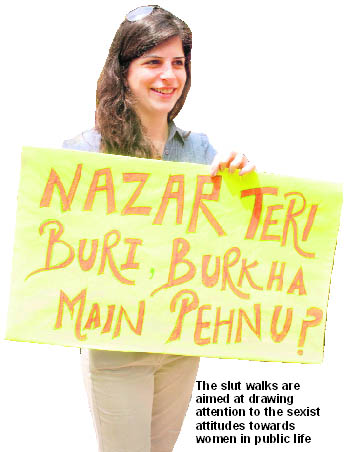 NAZAR TERI
BURI, BURKHA
MAIN PEHNU?
The slut walks are
aimed at drawing
attention to the sexist
attitudes towards
women in public life